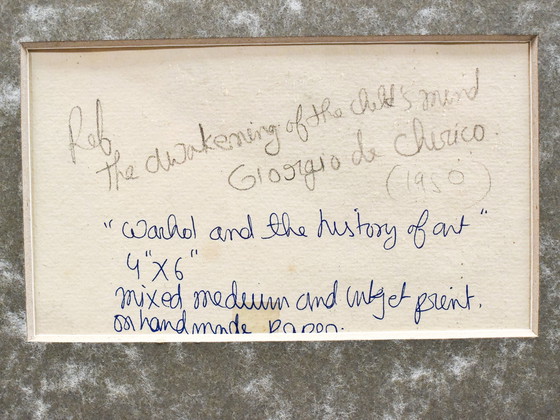 Ref
The awakening of the child's mind
Giorgio de Chirico.
(1950)
"Warhol and the history of art"
4"x6"
mixed medium and inkjet print.
on handmade paper.